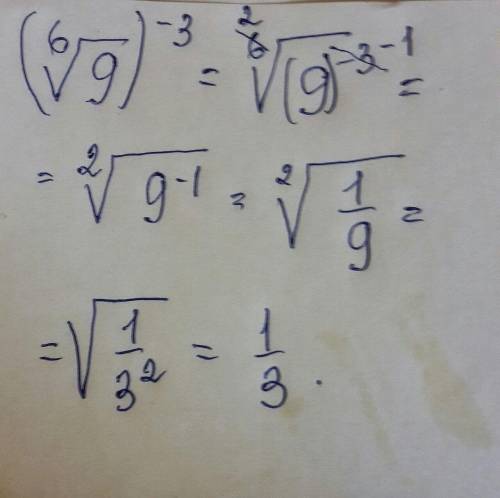 (⁶√9)⁻³ = ²√(9)⁻¹ =
= ²√9⁻¹ = ²√1/9 =
= √1/3² = 1/3 .